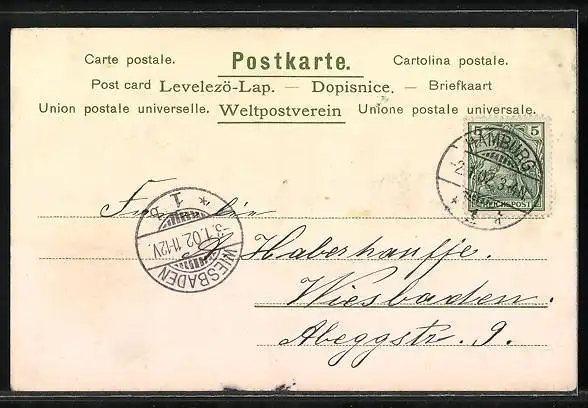 Carte postale. Postkarte. Cartolina postale.
Post card Levelezö-Lap. — Dopisnice. — Briefkaart
Union postale universelle. Weltpostverein Unione postale universale.
5 5
HAMBURG
1
WIESBADEN
3.1.02.11-12V.
Haberhauffe.
Wiesbaden.
Abeggstr. 9.